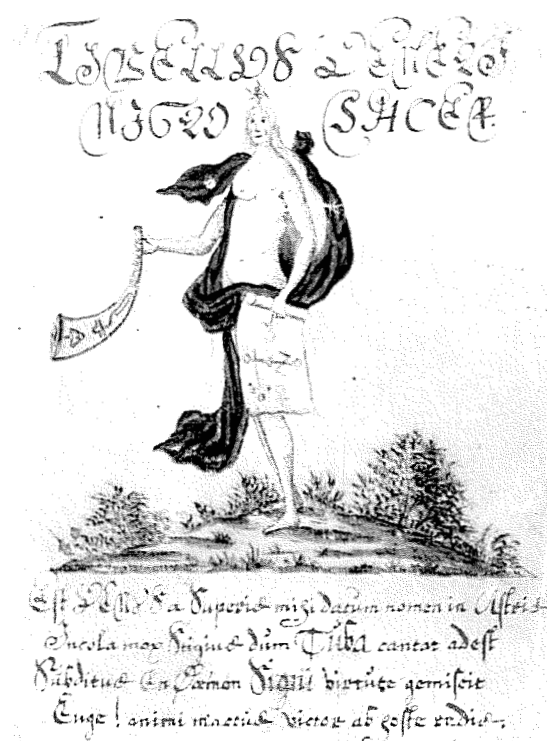 LIBELLUS VENERI
NIGRO SACER.
Est VENUS a Superis mihi datum nomen in Astris
Incola mox Stigius dum Tuba cantat adest
Subditus en Dæmon virtute gemiscit
Euge! animi mactus victor ab hoste redis.